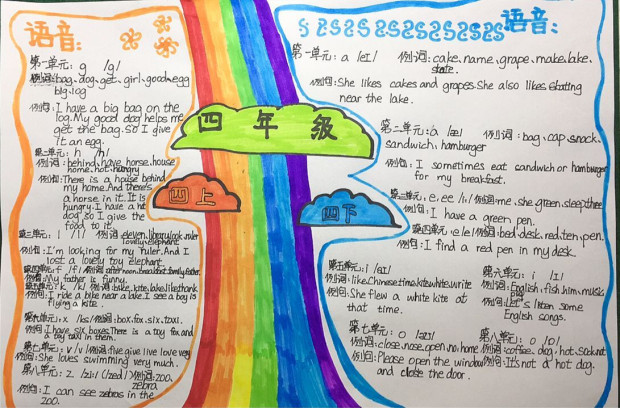 语音:
第一单元: g /g/
例词: bag、dog、get、girl、good、egg
big、log
例句: I have a big bag on the
log. My good dog helps me
get the bag. so I give
it an egg.
第二单元: h /h/
例词: behind、have、horse、house
home、hot、hungry
例句: There is a house behind
my home. And there's
a horse in it. It is
hungry. I have a hot
dog, so I give the
food to it.
第三单元: l /l/ 例词: eleven、library、look、ruler
lovely、elephant
例句: I'm looking for my ruler. And I
lost a lovely toy elephant.
第四单元: f /f/ 例词: afternoon、breakfast、family、father
例句: My father is funny.
第五单元: k /k/ 例词: bike、kite、lake、like、thank
例句: I ride a bike near a lake. I see a bag is
flying a kite.
第六单元: x /ks/ 例词: box、fox、six、taxi
例句: I have six boxes. There is a toy fox and
a toy taxi in them.
第七单元: v /v/ 例词: five give live love very
例句: She loves swimming very much.
第八单元: z /zi:/ (/zed/) 例词: zoo、
zebra
例句: I can see zebras in the
zoo.
四年级
四上
四下
语音:
第一单元: a /eɪ/ 例词: cake、name、grape、make、lake、
skate
例句: She likes cakes and grapes. She also likes skating
near the lake.
第二单元: a /æ/ 例词: bag、cap、snack、
sandwich、hamburger
例句: I sometimes eat sandwich or hamburger
for my breakfast.
第三单元: e、ee /i:/ 例词: me、she、green、sleep、three
例句: I have a green pen.
第四单元: e /e/ 例词: bed、desk、red、ten、pen
例句: I find a red pen in my desk.
第五单元: i /aɪ/
例词: like、Chinese、time、kite、white、write
例句: She flew a white kite at
that time.
第六单元: i /ɪ/
例词: English、fish、him、music
big
例句: Let's listen some
English songs.
第七单元: o /əʊ/
例词: close、nose、open、no、home
例句: Please open the window
and close the door.
第八单元: o /ɒ/
例词: coffee、dog、hot、sock、not
例句: It's not a hot dog.